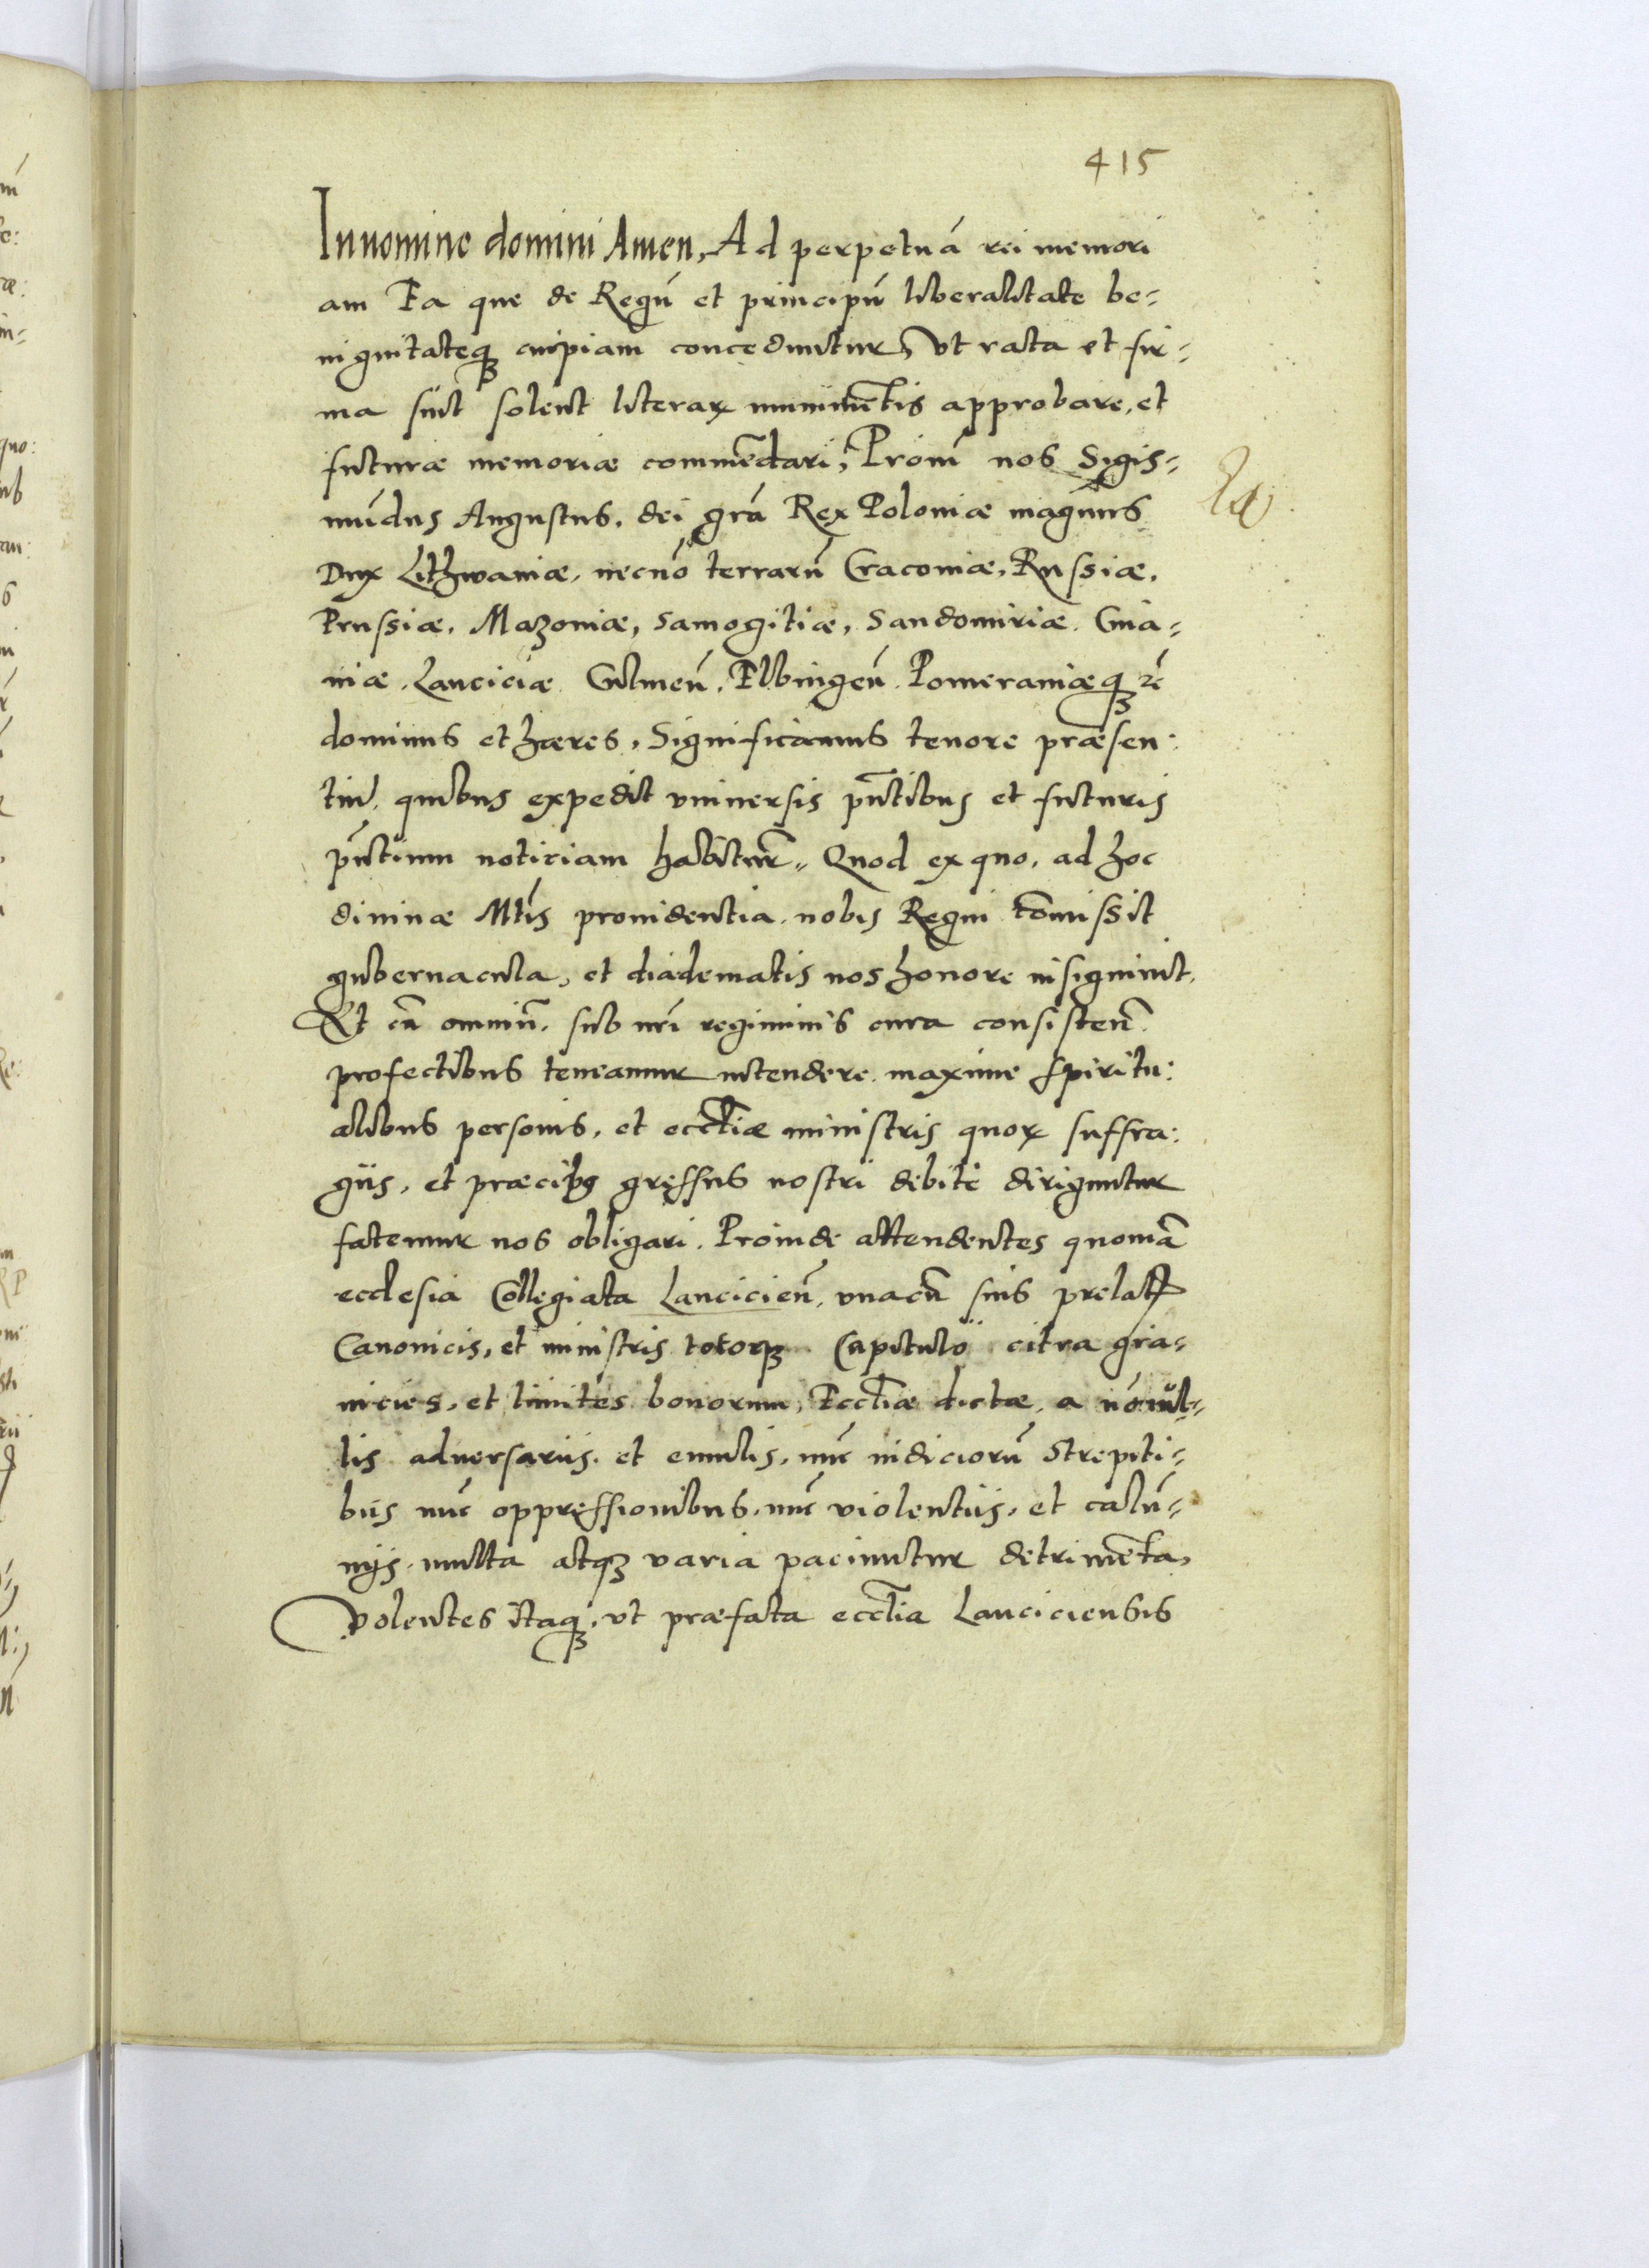 415
In nomine domini Amen, Ad perpetuã rei memori
am Ea que de Regũ et principũ liberalitate be-
nignitateqꝫ cuipiam conceduntur, Vt rata et fir-
ma sint solent literaꝝ munimẽtis approbare, et
futuræ memoriæ commẽdari, Proin̄ nos Sigis-
mũdus Augustus, dei grã Rex Poloniæ magnus
Dux Lithwaniæ, necnõ terrarũ Cracouiæ, Russiæ,
Prussiæ, Mazouiæ, Samogitiæ, Sandomiriæ, Cuia-
uiæ, Lanciciæ Culmeñ, Elbingeñ Pomeraniæqꝫ
dominus et hæres, Significamus tenore præsen:
tiũ, quibus expedit vniuersis pñtibus et futuris
pñtium noticiam habitur̃, Quod ex quo, ad hoc
diuinæ Mtis prouidentia, nobis Regni cõmissit
gubernacula, et diadematis nos honore insigniuit,
Et cũ omniũ, sub nri regiminis cura consisteñ
profectibus teneamur intendere, maxime spiritu:
alibus personis, et eccliæ ministris quoꝝ suffra:
giis, et præcibꝫ gressus nostri debite diriguntur
fatemur nos obligari. Proinde attendentes quomã
ecclesia Collegiata Lancicieñ, vnacũ suis prelatꝭ
Canonicis, et ministris totoqꝫ Capitulo citra gra-
nicies, et limites bonorum, Eccliæ dictæ, a nõnul-
lis aduersariis, et emulis, nũc iudiciorũ strepiti-
bus nũc oppressionibus, nũc violentiis, et calũ-
nijs, multa atqꝫ varia paciuntur detrimẽta,
Volentes itaqꝫ, vt præfata ecclia Lanciciensis